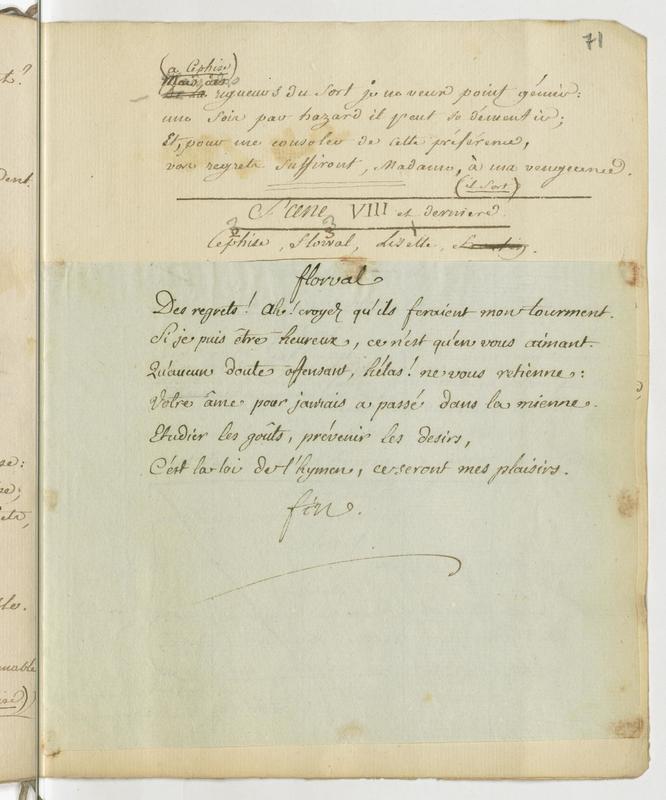 71
(a Cephise)
rigueurs du Sort je ne veux point gémir:
une Soir par hazard il peut se démentir;
Et, pour me consoler de cette préférence,
vos regrets Suffiront, Madame, à ma vengeance.
(il Sort)
Scene VIII et derniere.
3 3 1
Cephise, Florval, Lisette,
florval
Des regrets! Ah! croyez qu'ils feraient mon tourment.
Si je puis être heureux, ce n'est qu'en vous aimant.
Qu'aucun doute offensant, hélas! ne vous retienne:
Votre âme pour jamais a passé dans la mienne.
Etudier les goûts, prévenir les desirs,
C'est la loi de l'hymen, ce seront mes plaisirs.
fin.